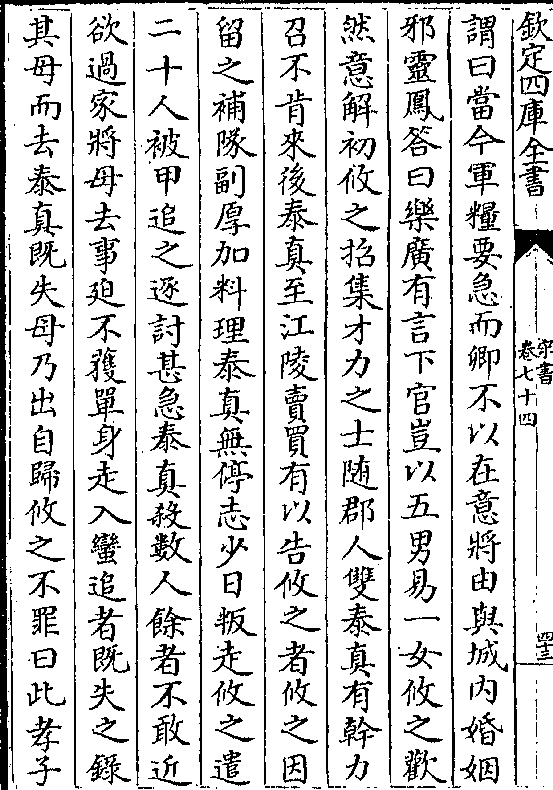 欽定四庫全書
宋書
卷七十四
四十三
謂曰當今軍糧要急而卿不以在意將由與城内婚姻
邪靈鳳答曰樂廣有言下官豈以五男易一女攸之歡
然意解初攸之招集才力之士随郡人雙泰真有幹力
召不肯來後泰真至江陵賣買有以告攸之者攸之因
留之補隊副厚加料理泰真無停志少日叛走攸之遣
二十人被甲追之逐討甚急泰真殺數人餘者不敢近
欲過家將母去事廹不獲單身走入蠻追者既失之錄
其母而去泰真既失母乃出自歸攸之不罪曰此孝子